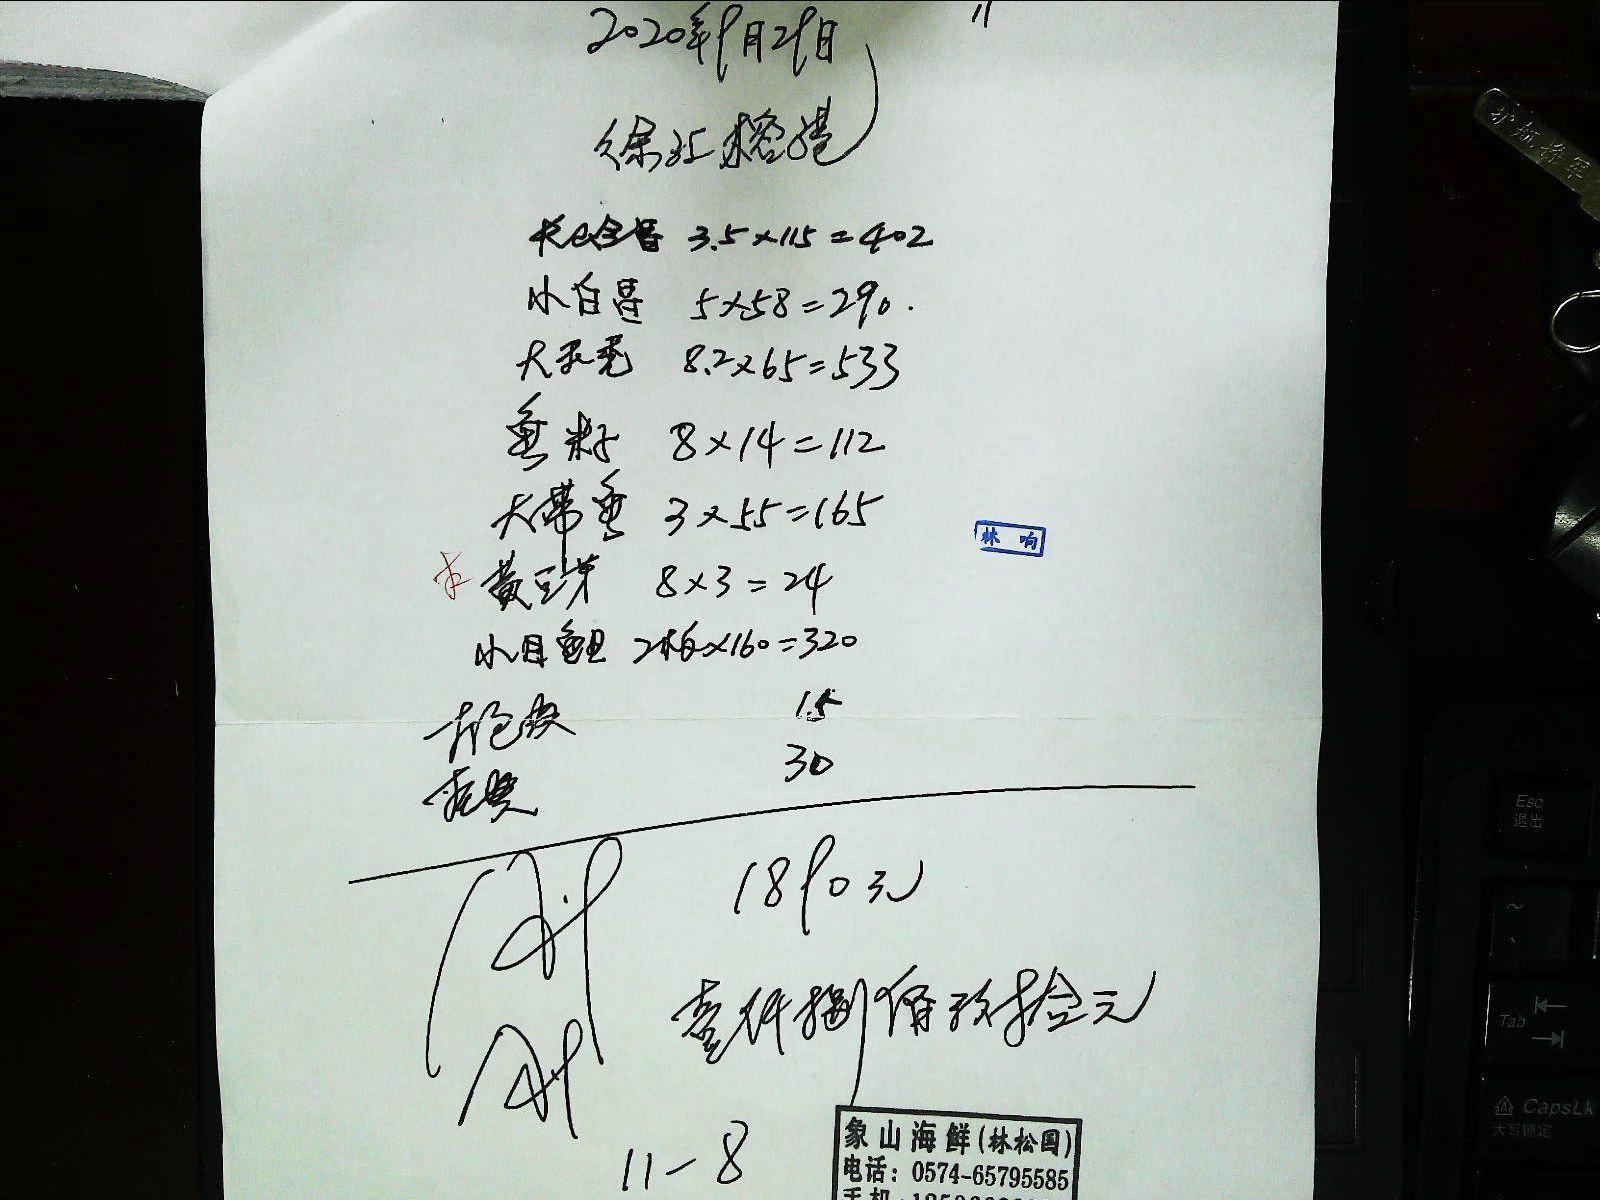 2020年9月29日
徐汇榕港
3.5×115=402
小白 5×58=290.
大 8.2×65=533
鱼籽 8×14=112
大带鱼 3×55=165
林响
黄豆芽 8×3=24
小目鱼 2箱×160=320
15
30
1890元
壹仟捌佰玖拾元
11-8
象山海鲜(林松国)
电话: 0574-65795585
手机
护航将军
Esc
退出
~
Tab
CapsLk
大写锁定